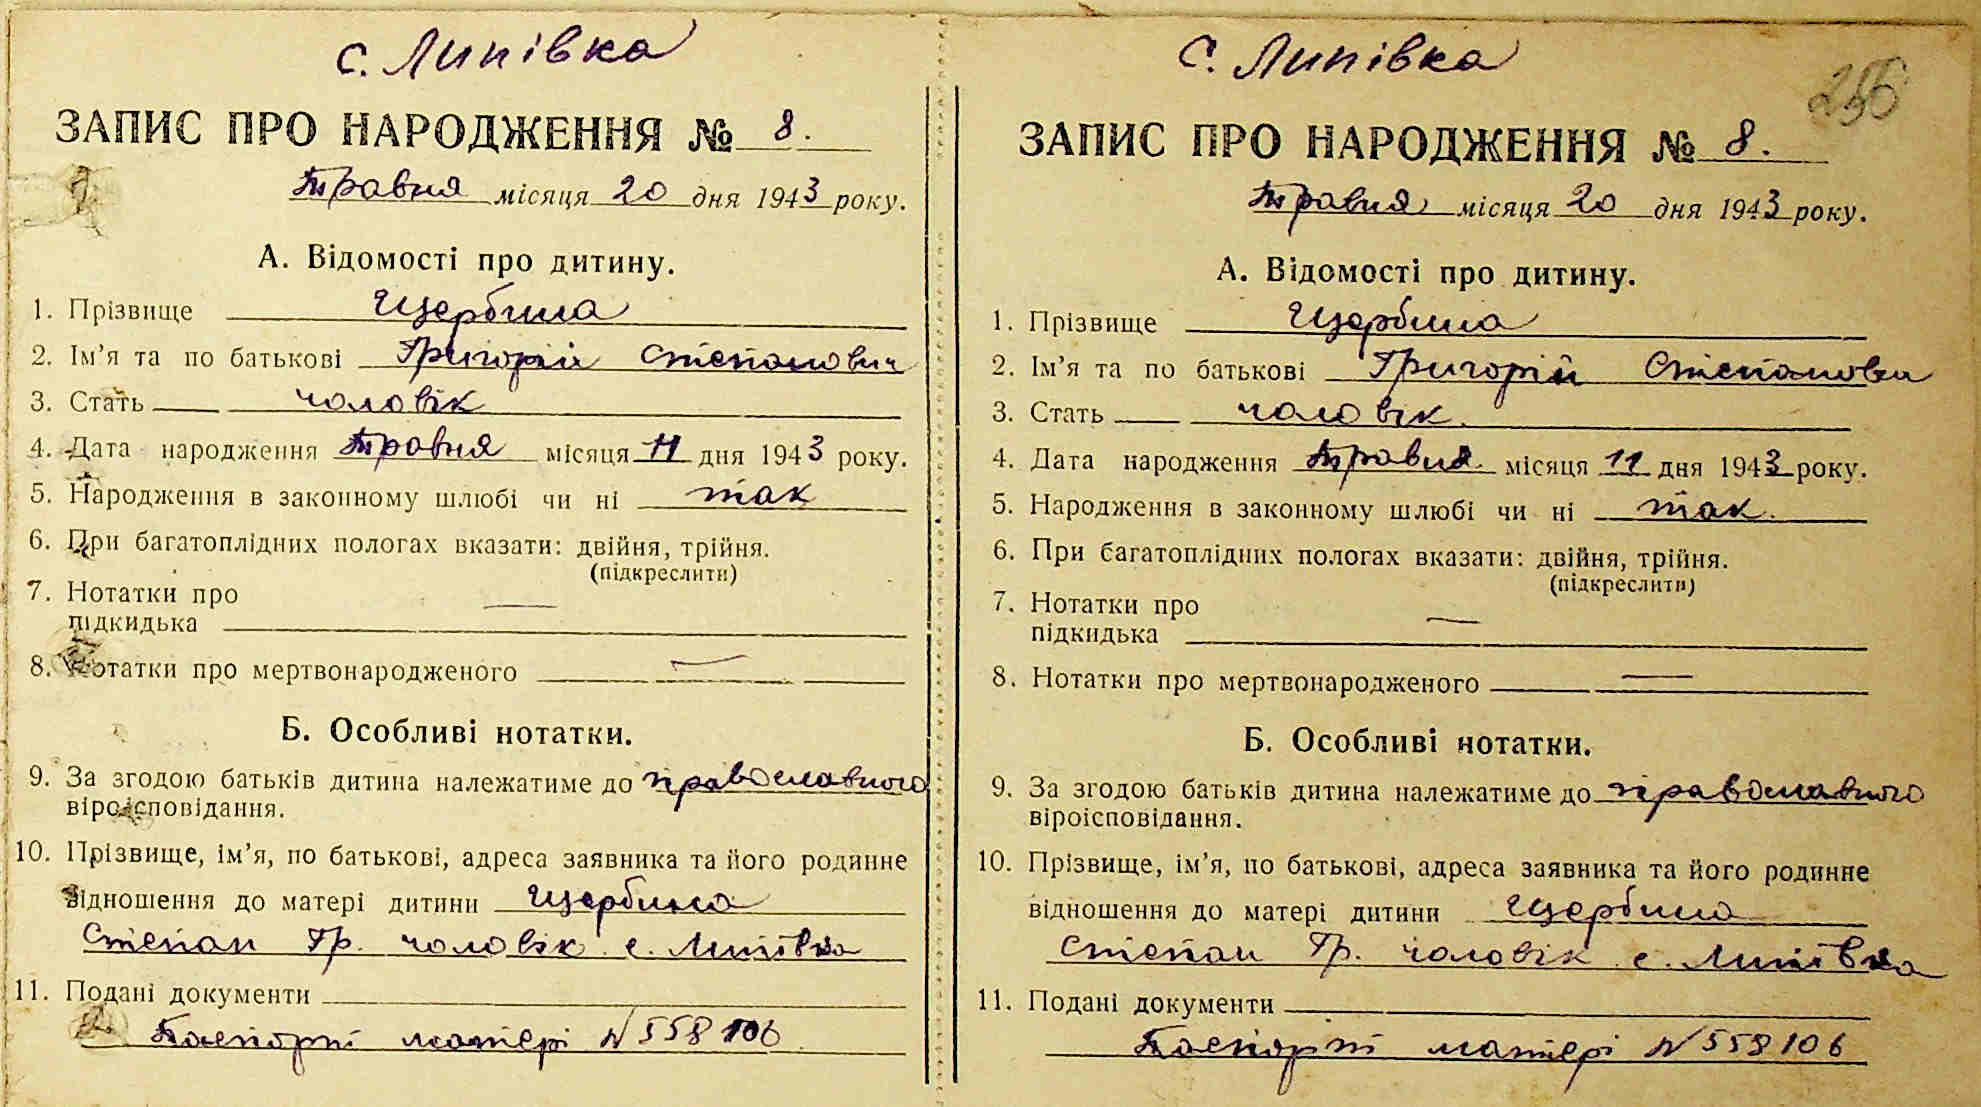 с. Липівка
ЗАПИС ПРО НАРОДЖЕННЯ № 8.
Травня місяця 20 дня 1943 року.
А. Відомості про дитину.
1. Прізвище Щербина
2. Ім'я та по батькові Григорій Степанович
3. Стать чоловік
4. Дата народження травня місяця 11 дня 1943 року.
5. Народження в законному шлюбі чи ні так
6. При багатоплідних пологах вказати: двійня, трійня.
(підкреслити)
7. Нотатки про
підкидька —
8. Нотатки про мертвонародженого —
Б. Особливі нотатки.
9. За згодою батьків дитина належатиме до православного
віроісповідання.
10. Прізвище, ім'я, по батькові, адреса заявника та його родинне
відношення до матері дитини Щербина
Степан Гр. чоловік с. Липівка
11. Подані документи
Паспорт матері N 558106
С. Липівка
256
ЗАПИС ПРО НАРОДЖЕННЯ № 8.
Травня місяця 20 дня 1943 року.
А. Відомості про дитину.
1. Прізвище Щербина
2. Ім'я та по батькові Григорій Степанови
3. Стать чоловік.
4. Дата народження травня місяця 11 дня 1943 року.
5. Народження в законному шлюбі чи ні так.
6. При багатоплідних пологах вказати: двійня, трійня.
(підкреслити)
7. Нотатки про
підкидька —
8. Нотатки про мертвонародженого —
Б. Особливі нотатки.
9. За згодою батьків дитина належатиме до православного
віроісповідання.
10. Прізвище, ім'я, по батькові, адреса заявника та його родинне
відношення до матері дитини Щербина
Степан Гр. чоловік с. Липівка
11. Подані документи
Паспорт матері N 558106